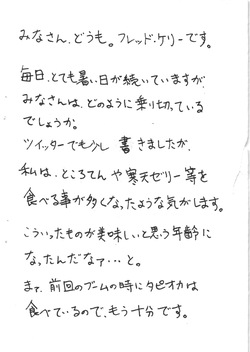 みなさん、どうも。フレッド・ケリーです。
毎日、とても暑い日が続いていますが、
みなさんは、どのように乗り切っている
でしょうか。
ツイッターでも少し書きましたが、
私は、ところてんや寒天ゼリー等を
食べる事が多くなったような気がします。
こういったものが美味しいと思う年齢に
なったんだなァ…と。
まァ、前回のブームの時にタピオカは
食べているので、もう十分です。